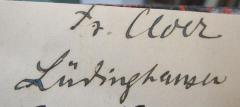 Fr. Cloer
Lüdinghausen